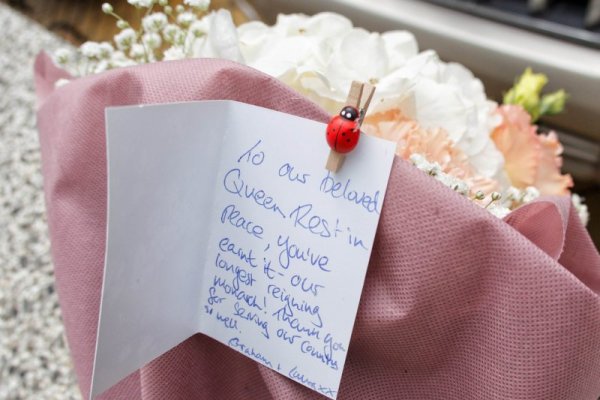 To our beloved
Queen Rest in
peace, you've
earnt it - our
longest reigning
monarch! Thank you
for serving our country
so well.
Graham + Laura xx